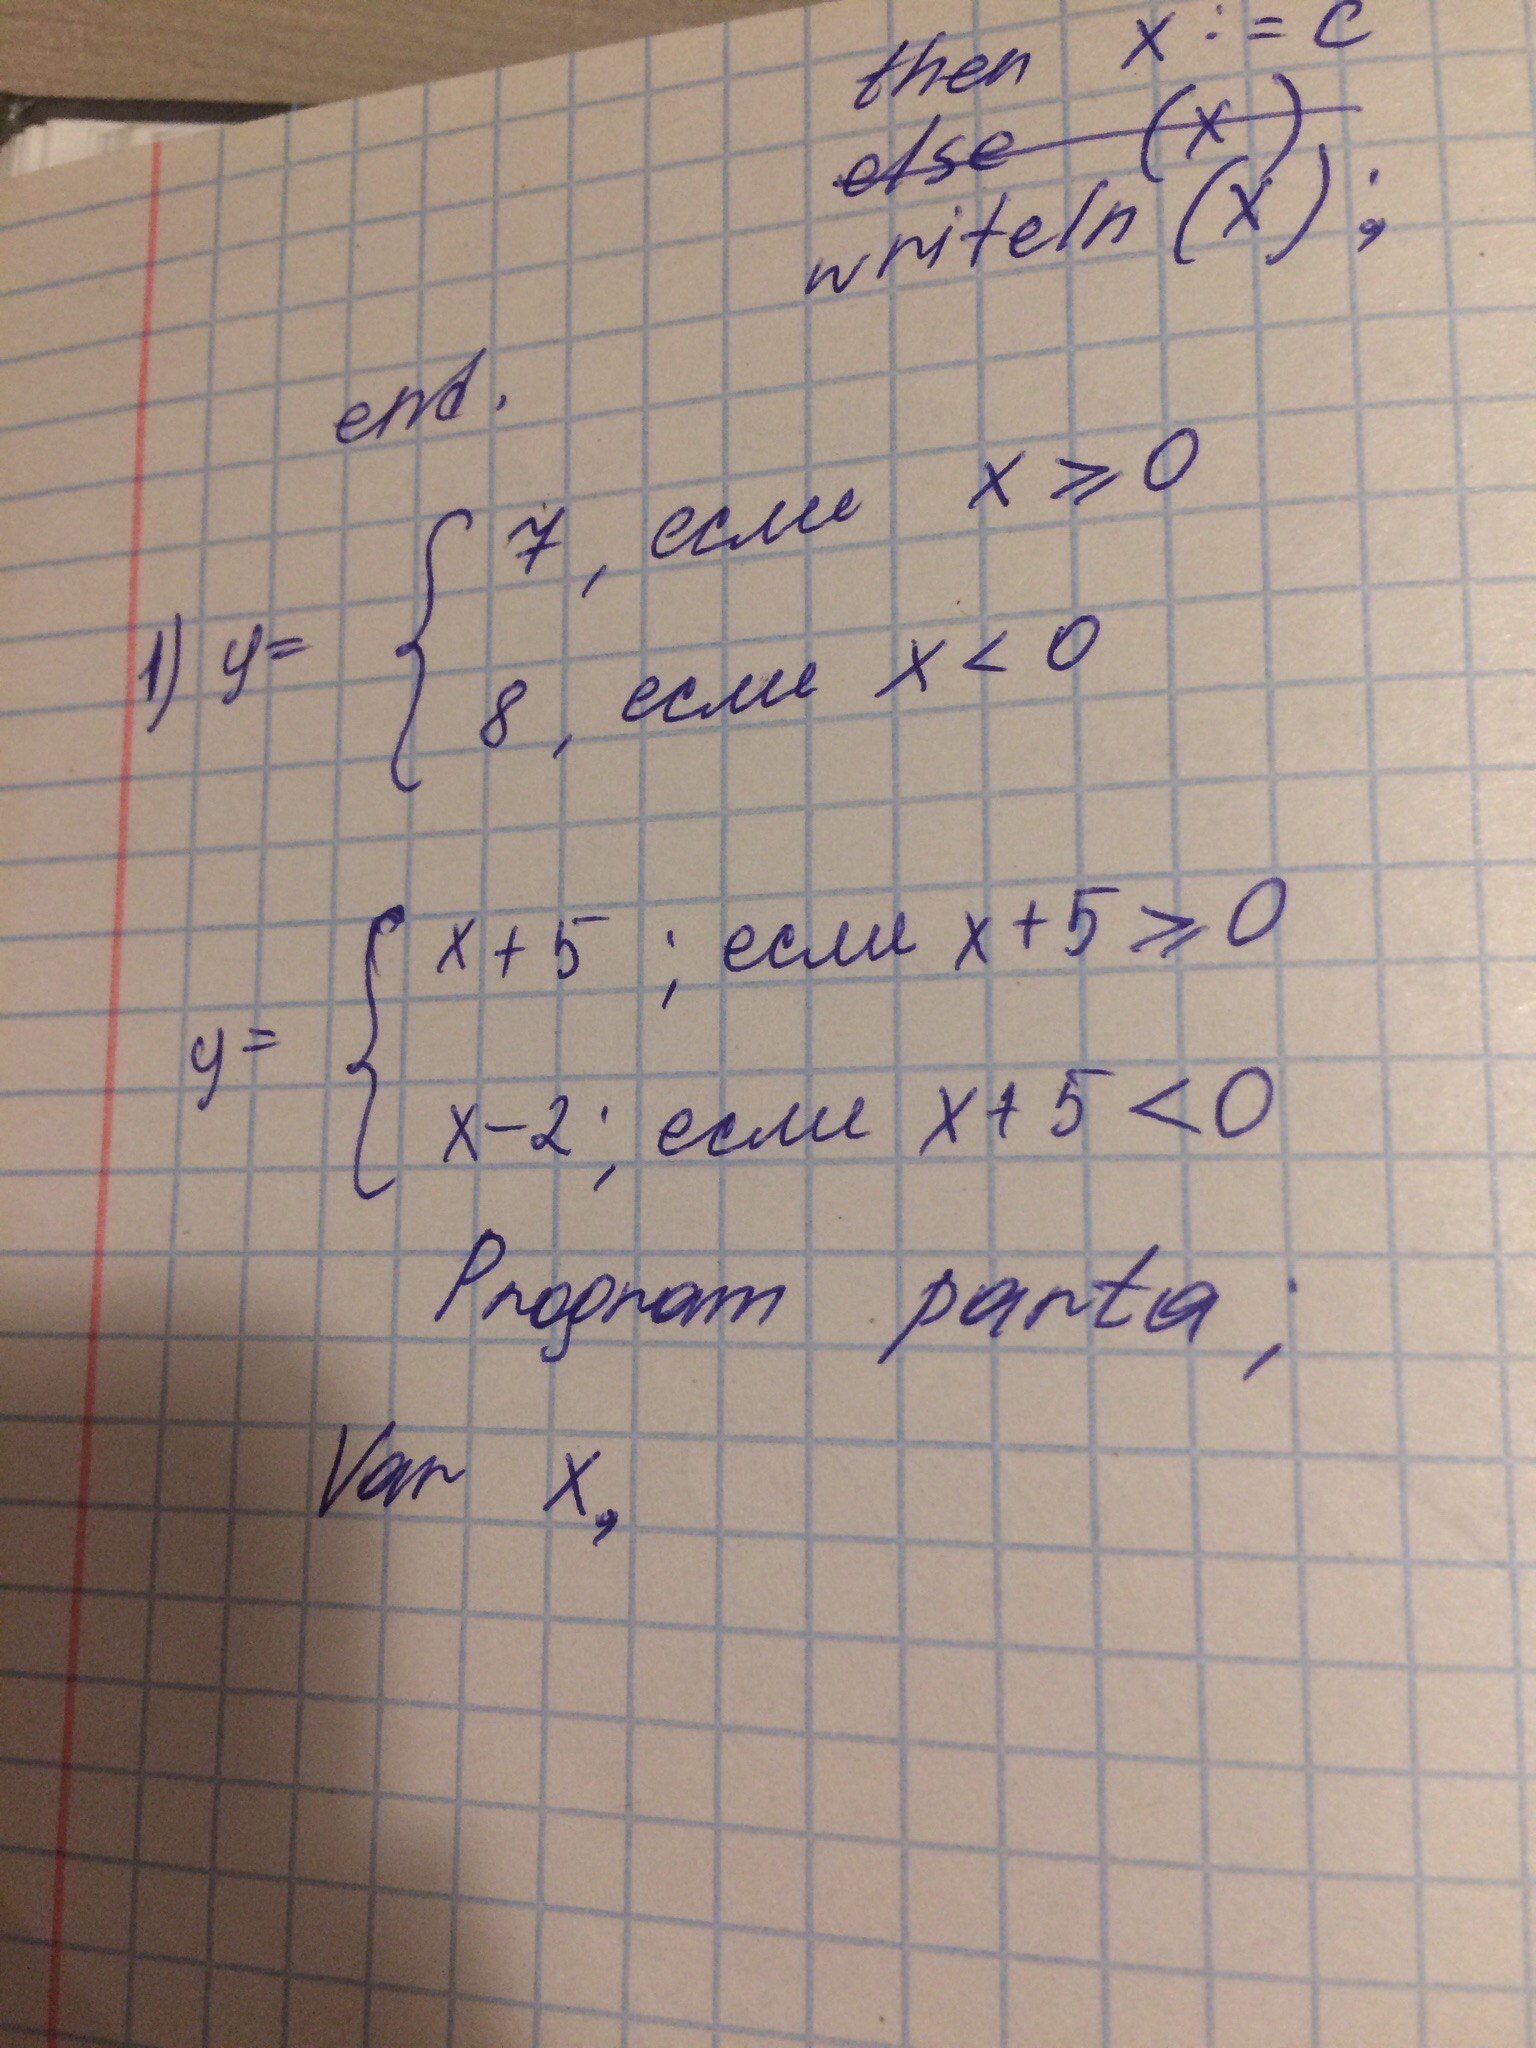 then x := c
else (x)
writeln (x);
end.
1) y= { 7, если x ⩾ 0
8, если x < 0
y= { x+5 ; если x+5 ⩾ 0
x-2; если x+5 < 0
Program parta;
Var x,